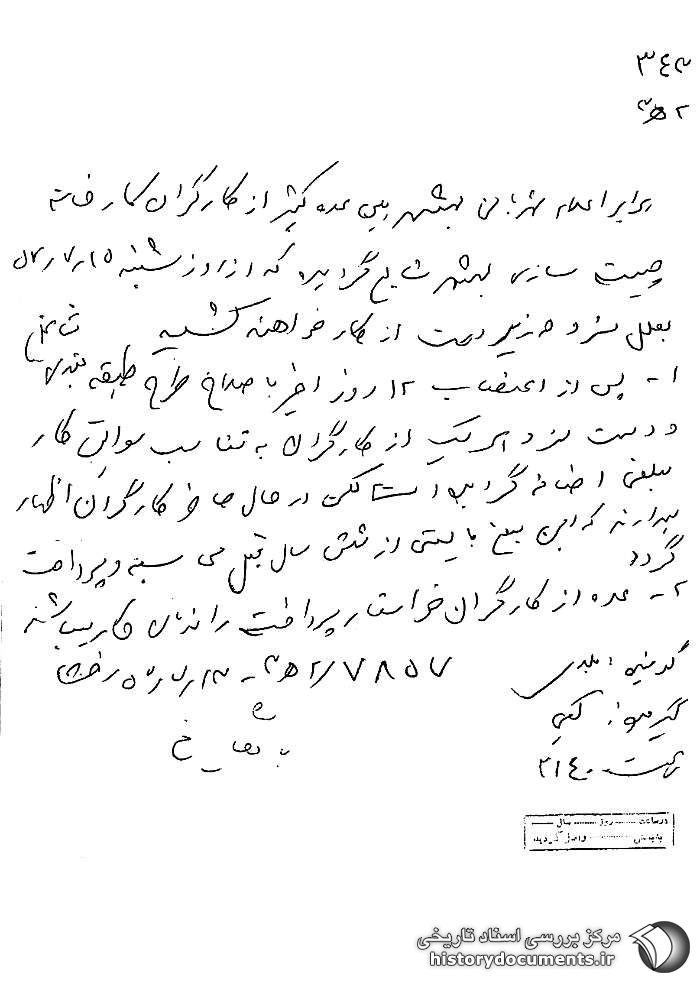 ۳۴۳
۲ ه‍ ۳
برابر اعلام شهربانی بهشهر بین عده کثیری از کارگران کارخانه
چیت سازی بهشهر شایع گردیده که از روز شنبه ۱۵ر۷ر۵۲
بعلل مشروحه زیر دست از کار خواهند کشید
۱- پس از اعتصاب ۱۲ روز اخیر با اصلاح طرح طبقه بندی
و دست مزد هر یک از کارگران به تناسب سوابق کار
مبلغی اضافه گردیده است لکن در حال حاضر کارگران اظهار
میدارند که این مبلغ بایستی از شش سال قبل محاسبه و پرداخت
گردد
۲- عده از کارگران خواستار پرداخت راندمان کار میباشند
گیرنده
گیرنده
ساعت ۲۱۴۰
۷۸۵۷/۲ه‍۳ - ۱۳ر۷ر۵۲
در ساعت ........ روز ........ سال ........
به بخش ........ واصل گردید
مرکز بررسی اسناد تاریخی
historydocuments.ir